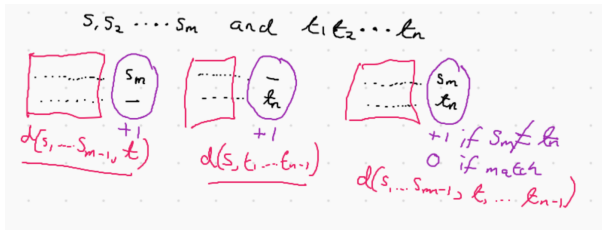 s₁s₂ ···· sₘ and t₁t₂ ··· tₙ
sₘ
—
+1
d(s₁ ... sₘ₋₁, t)
—
tₙ
+1
d(s, t₁ ... tₙ₋₁)
sₘ
tₙ
+1 if sₘ ≠ tₙ
0 if match
d(s₁ ... sₘ₋₁, t₁ ... tₙ₋₁)